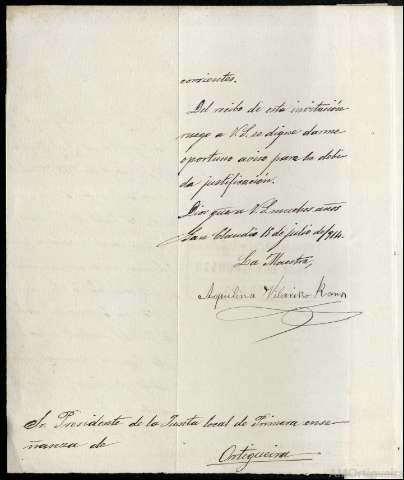 corrientes.
Del recibo de esta invitación
ruego a V.S. se digne darme
oportuno aviso para la debi-
da justificación.
Dios gua a V.S. muchos años
San Claudio 15 de julio de 1914.
La Maestra,
Aquilina Vilariño Ramos
Sr. Presidente de la Junta local de Primera ense-
ñanza de
Ortigueira